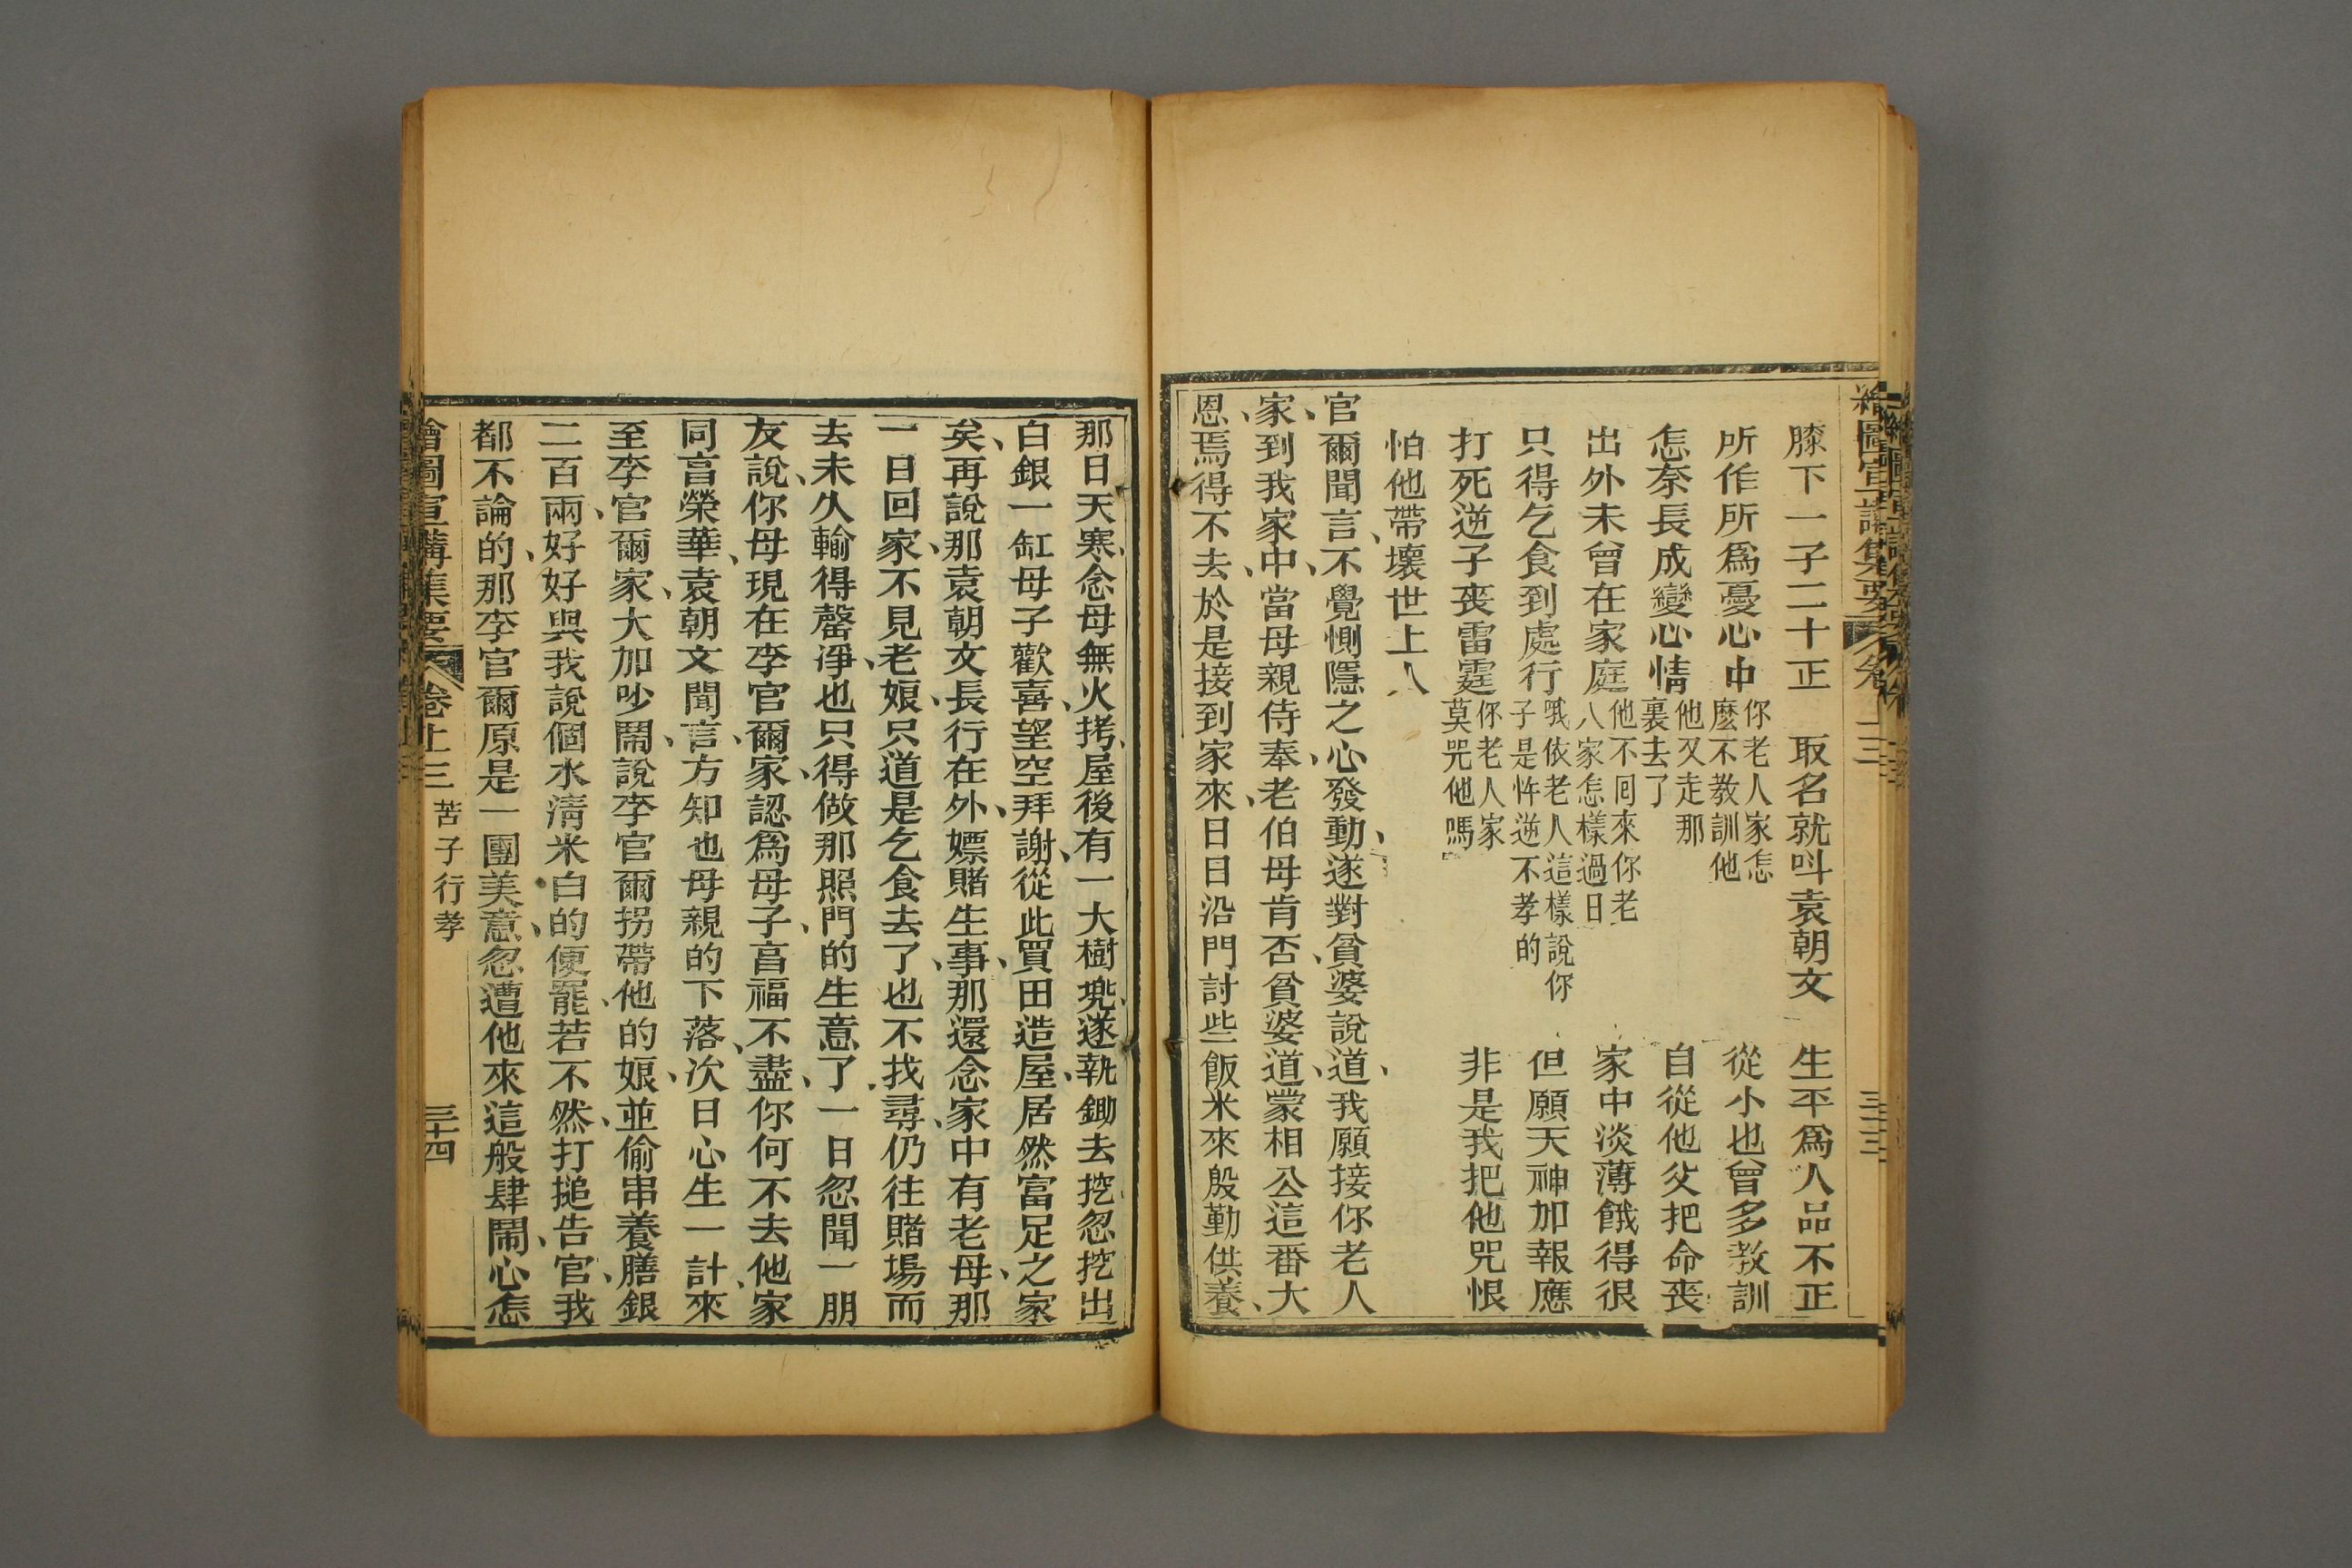 繪圖宣講集要 卷上三 三十三
膝下一子二十正 取名就呌袁朝文 生平爲人品不正
所作所爲憂心中 你老人家怎麽不教訓他 從小也曾多教訓
怎奈長成變心情 他又走那裏去了 自從他父把命喪
出外未曾在家庭 他不囘來你老人家怎樣過日 家中淡薄餓得很
只得乞食到處行 哦依老人這樣說你子是忤逆不孝的 但願天神加報應
打死逆子喪雷霆 你老人家莫咒他嗎 非是我把他咒恨
怕他帶壞世上人
官爾聞言、不覺惻隱之心發動、遂對貧婆說道、我願接你老人
家、到我家中、當母親侍奉、老伯母肯否、貧婆道、蒙相公這番大
恩、焉得不去、於是接到家來、日日沿門討些飯米來殷勤供養、
那日天寒、念母無火拷、屋後有一大樹兠、遂執鋤去挖、忽挖出
白銀一缸、母子歡喜、望空拜謝、從此買田造屋、居然富足之家
矣、再說那袁朝文、長行在外、嫖賭生事、那還念家中有老母、那
一日回家、不見老娘、只道是乞食去了、也不找尋、仍往賭場而
去、未久輸得罄淨、也只得做那照門的生意了、一日忽聞一朋
友說、你母現在李官爾家、認爲母子、享福不盡、你何不去他家
同享榮華、袁朝文聞言、方知也母親的下落、次日心生一計、來
至李官爾家、大加吵鬧、說李官爾拐帶他的娘、並偷串養膳銀
二百兩、好好與我說個水清米白的便罷、若不然、打搥告官、我
都不論的、那李官爾原是一團美意、忽遭他來這般肆鬧、心怎
繪圖宣講集要 卷上三 苦子行孝 三十四